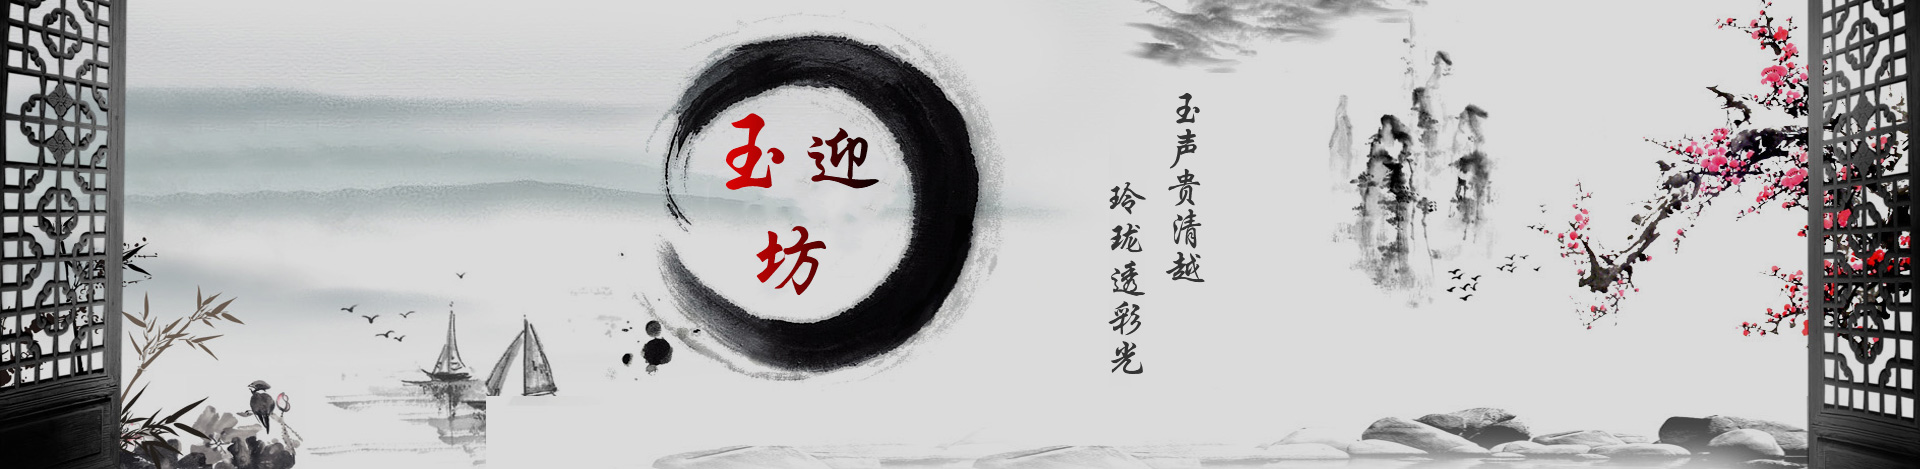 玉迎
坊
玉声贵清越
玲珑透彩光